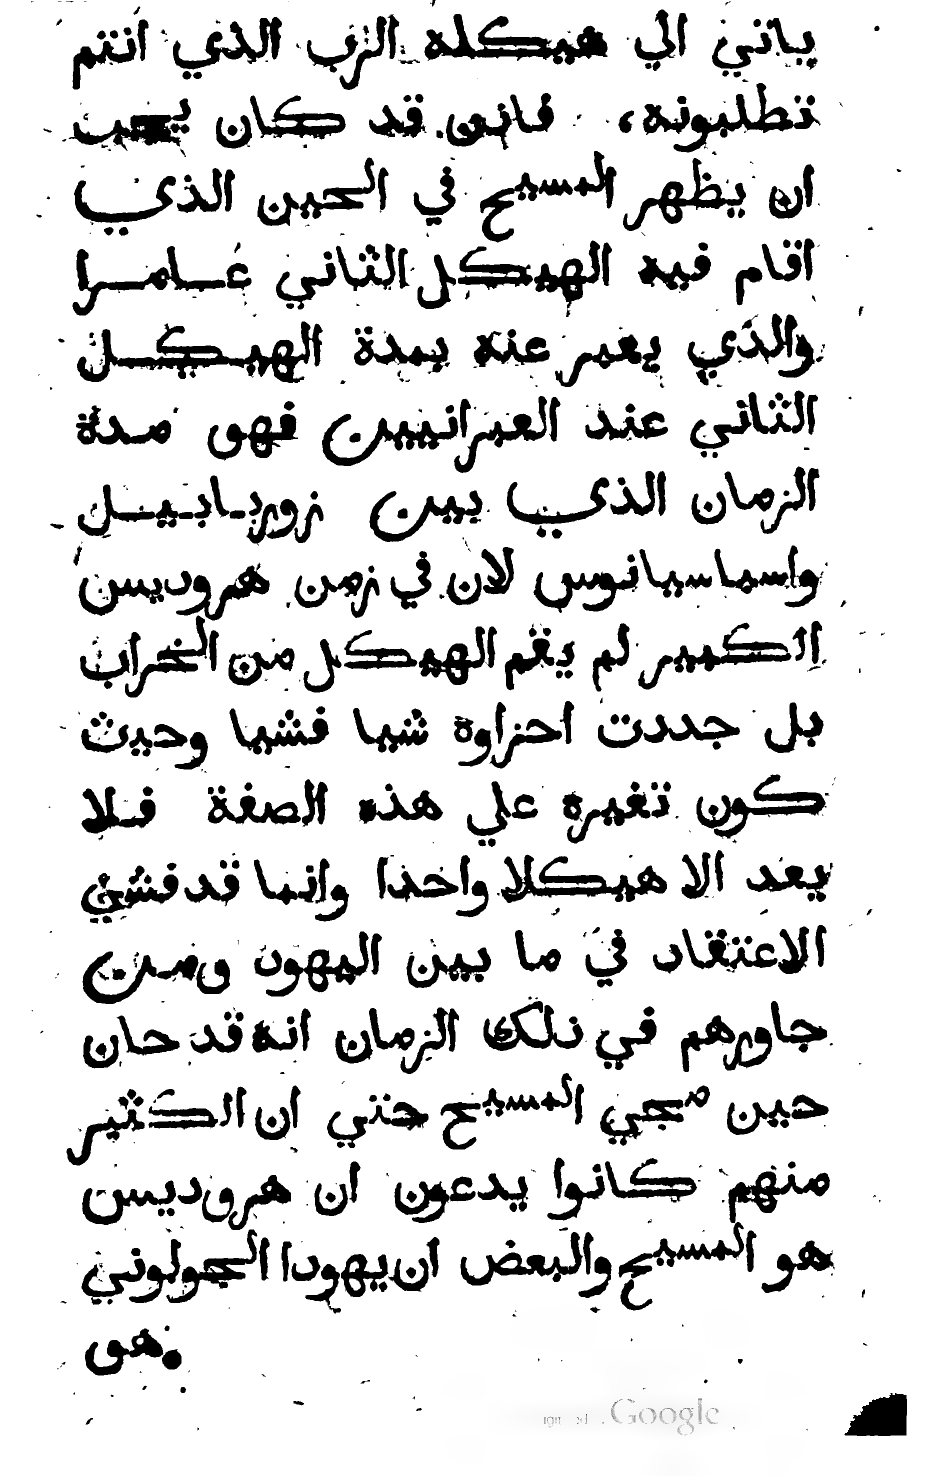 ياتي الي هيكله الرب الذي انتم
تطلبونه، فاذن قد كان يجب
ان يظهر المسيح في الحين الذي
اقام فيه الهيكل الثاني عامرا
والذي يعبر عنه بمدة الهيكل
الثاني عند العبرانيين فهو مدة
الزمان الذي بين زوربابيل
واسباسيانوس لان في زمن هروديس
الكبير لم يقم الهيكل من الخراب
بل جددت اجزاوة شيا فشيا وحيث
كون تغيره علي هذه الصفة فلا
يعد الا هيكلا واحدا وانما قد فشي
الاعتقاد في ما بين اليهود ومن
جاورهم في ذلك الزمان انه قد حان
حين مجي المسيح حتي ان الكثير
منهم كانوا يدعون ان هروديس
هو المسيح والبعض ان يهودا الجولوني
هو.
Google